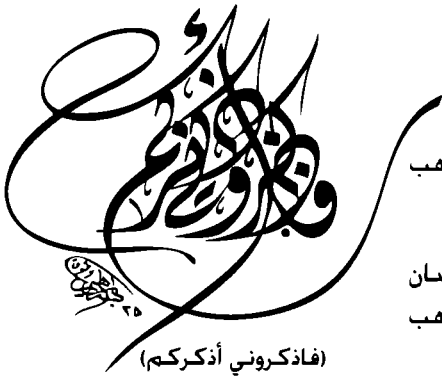 فاذكروني أذكركم
هب
ـان
هب
٢٥
(فاذكروني أذكركم)